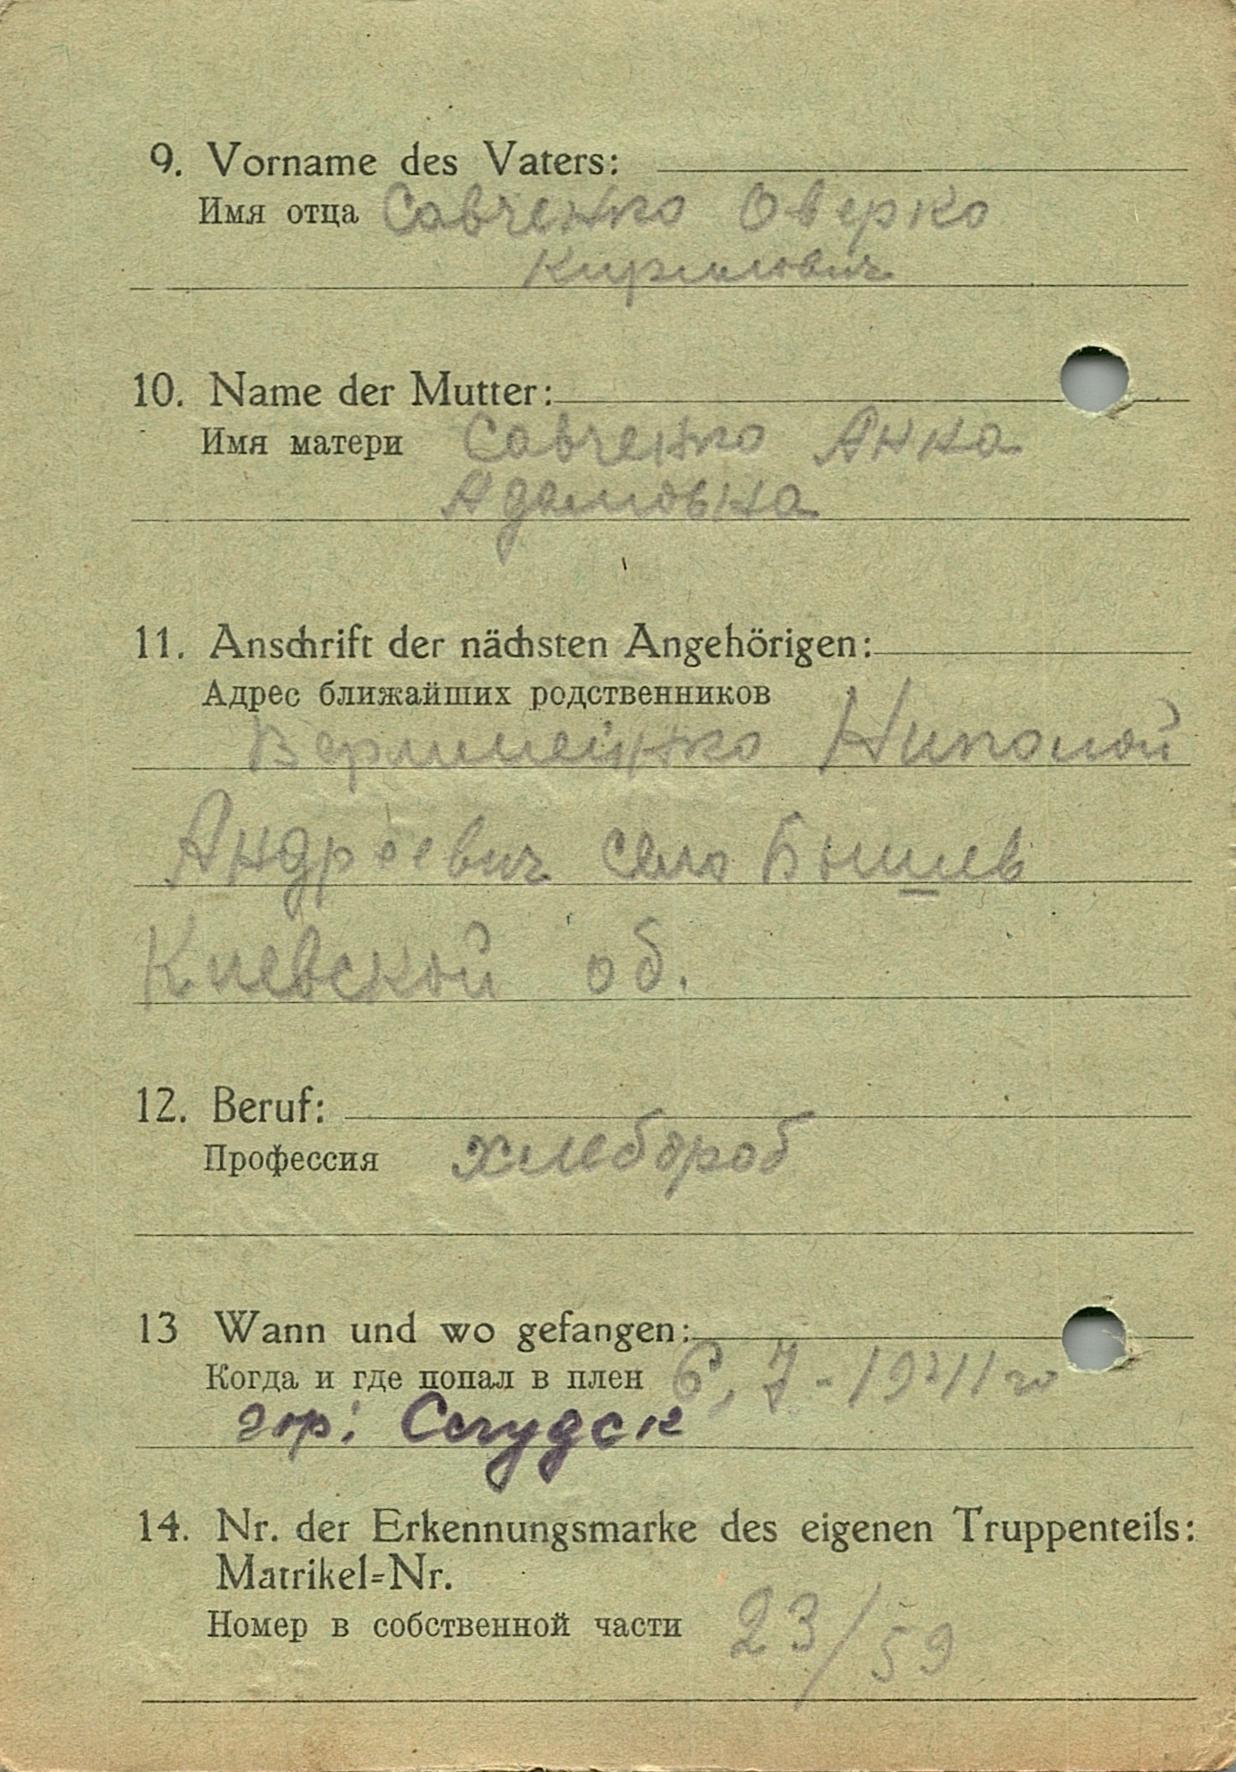 9. Vorname des Vaters:
Имя отца Савченко Оверко
Кирилович
10. Name der Mutter:
Имя матери Савченко Анна
Адамовна
11. Anschrift der nächsten Angehörigen:
Адрес ближайших родственников
Николай
Андреевич село Бышев
Киевской об.
12. Beruf:
Профессия хлебороб
13 Wann und wo gefangen:
Когда и где попал в плен 6, 7 - 1941 го
гор:
14. Nr. der Erkennungsmarke des eigenen Truppenteils:
Matrikel=Nr.
Номер в собственной части 23/59